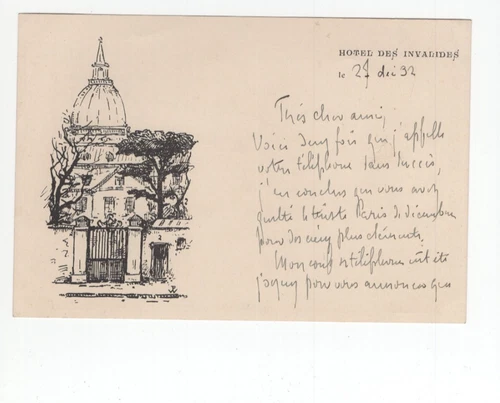 HOTEL DES INVALIDES
le 27 déc 32
Très cher ami,
Voici deux fois que j'appelle
votre téléphone sans succès,
j'en conclus que vous avez
quitté le triste Paris de décembre
pour des cieux plus cléments.
Mon coup de téléphone eût été
jusque pour vous annoncer que